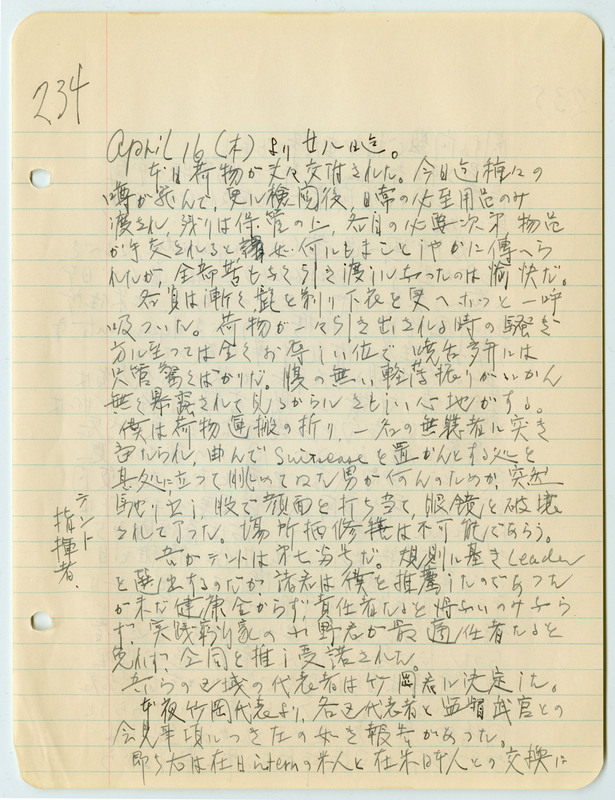 234
April 16 (木) より せル 迄。
本日荷物が 交付された。今日迄種々の
噂が飛んで、更ニ検閲後、日常の必要用品のみ
渡され、残りは保管の上、各自の必要次第、物品
が手交されると 如何にもまことしやかに傳へら
れたが、全部苦もなく引き渡しあったのは愉快だ。
各員は漸く髭を剃り下衣を更へホッと一呼
吸ついた。荷物が一々引き出される時の騒ぎ
方ニ至っては全くお辱しい位で、
只管驚くばかりだ。腹の無い軽薄振りがいかん
無く暴露されて見るからにさもしい心地がする。
僕は荷物運搬の折り、一名の無頼者に突き
当たられ、由んで Suitcaseを置かんとする処を
其処に立って眺めてゐた男が何んのためか、突然
馳り出し、股で顔面を打ち当て、眼鏡を破壊
されて了った。場所柄修繕は不可能であらう。
吾がテントは第七号だ。規則に基き Leader
を選出するのだが、諸君は僕を推薦したのであった
が未だ健康全からず、責任者たると得ないのみなら
ず、実践躬行家の 野君が最適任者たると
見れず、全同を推し受諾された。
吾らの区域の代表者は竹岡君に決定した。
本夜竹岡代表より、各区代表者と監督武官との
会見事項につき左の如き報告があった。
即ち右は在日internの米人と在米日本人との交換は
テント
指揮者.